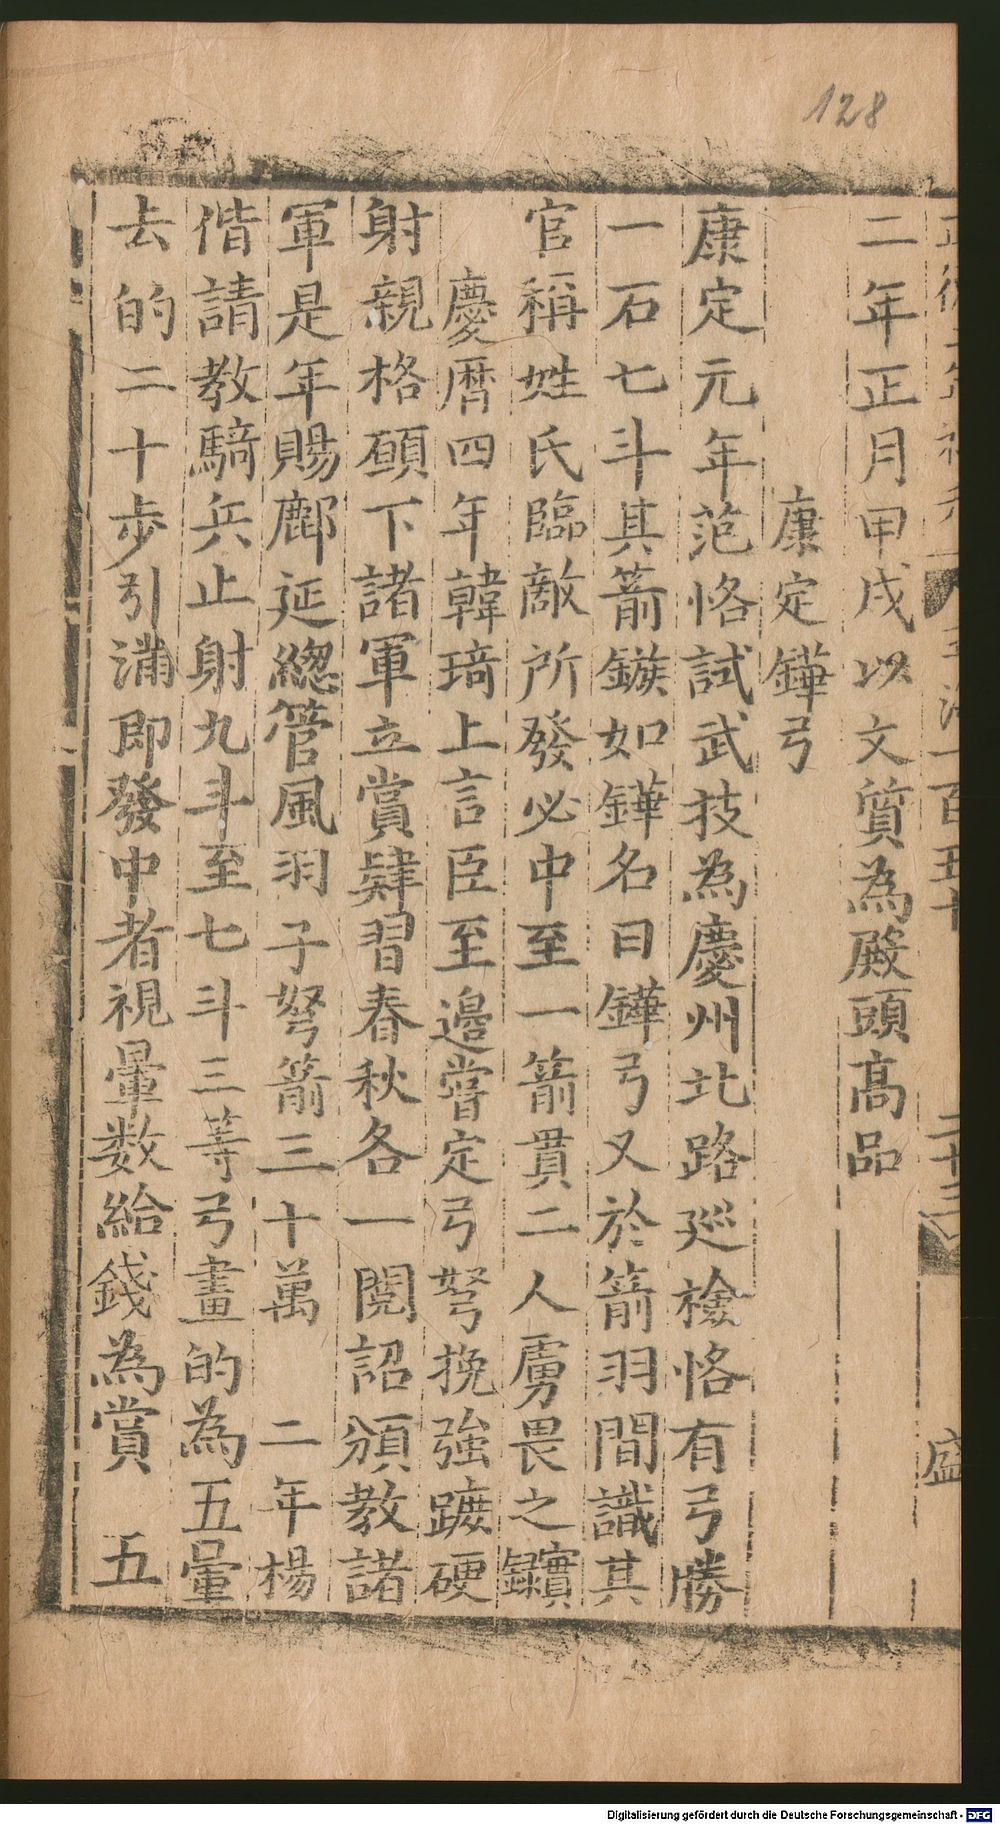 128
二年正月甲戌以文質為殿頭髙品
康定鏵弓
康定元年范恪試武技為慶州北路廵檢恪有弓勝
一石七斗其箭鏃如鏵名曰鏵弓又於箭羽間識其
官稱姓氏臨敵所發必中至一箭貫二人虜畏之實録
慶暦四年韓琦上言臣至邉嘗定弓弩挽強蹠硬
射親格頋下諸軍立賞肄習春秋各一閱詔頒教諸
軍是年賜鄜延緫管風羽子弩箭三十萬　二年楊
偕請教騎兵止射九斗至七斗三等弓畫的為五暈
去的二十步引滿即發中者視暈数給錢為賞　五
盛
Digitalisierung gefördert durch die Deutsche Forschungsgemeinschaft - DFG